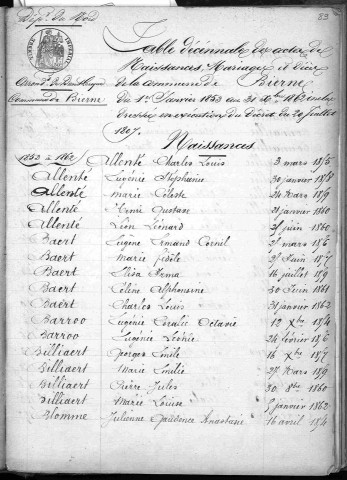 Dépt. du Nord
23
Arrond. de Dunkerque
Commune de Bierne
Table décennale des actes de
Naissances, Mariages et Décès
de la commune de Bierne
du 1er Janvier 1853 au 31 Xbre 1862 inclus
dressée en exécution du décret du 20 juillet
1807.
Naissances
1853 à 1862
Allenté Charles Louis 3 mars 1855
Allenté Eugénie Stéphanie 30 janvier
Allenté Marie Céleste 24 Mars 1859
Allenté Henri Gustave 21 janvier 1860
Allenté Léon Léonard juin 1860
Baert Eugène Armand Cornil mars 1856
Baert Marie Fidèle Juin 1857
Baert Elisa Irma 16 juillet 1859
Baert Céline Alphonsine 30 Juin 1861
Baert Charles Louis 31 janvier 1862
Barroo Eugénie Coralie Octavie 12 Xbre 1854
Barroo Eugénie Léonie 24 février 1856
Billiaert Georges Emile 16 Xbre 1857
Billiaert Marie Emélie 27 Mars 1859
Billiaert Pierre Jules 30 8bre 1860
Billiaert Marie Louise 5 janvier 1862
Blomme Julienne Prudence Anastasie 16 avril 1854